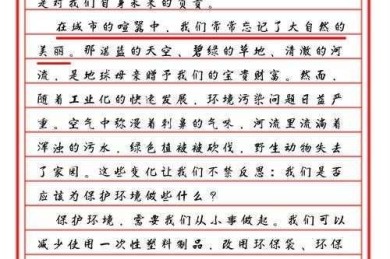 是对我们自身未来的负责。
在城市的喧嚣中，我们常常忘记了大自然的
美丽。那湛蓝的天空、碧绿的草地、清澈的河
流，是地球母亲赠予我们的宝贵财富。然而，
随着工业化的快速发展，环境污染问题日益严
重。空气中弥漫着刺鼻的气味，河流里流淌着
浑浊的污水，绿色植被被砍伐，野生动物失去
了家园。这些变化让我们不禁反思：我们是否
应该为保护环境做些什么？
保护环境，需要我们从小事做起。我们可以
减少使用一次性塑料制品，改用环保袋、环保